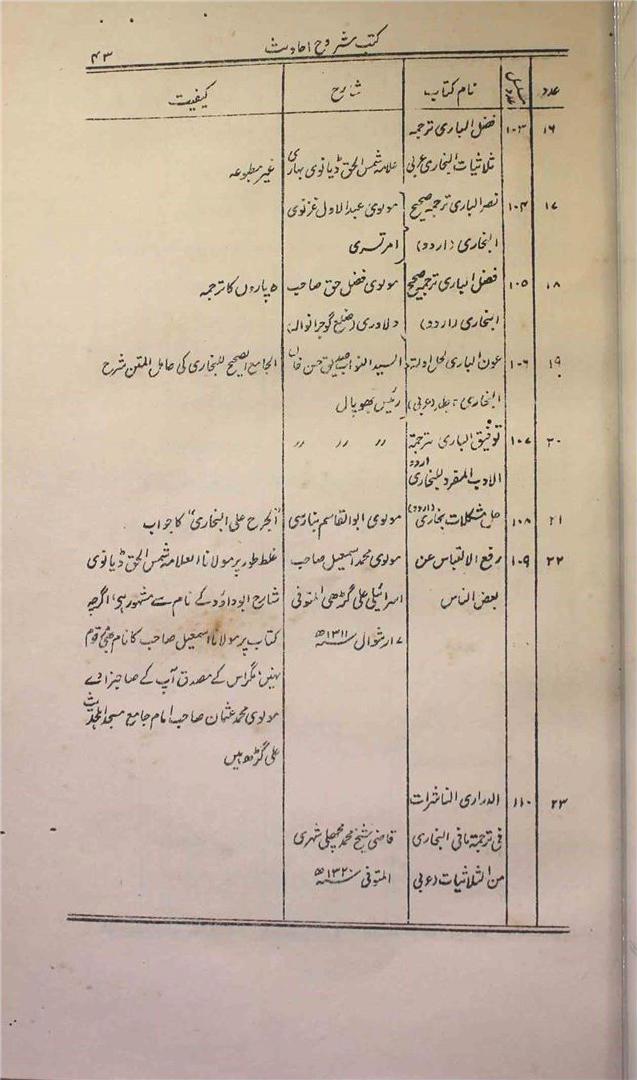 ۴۳ کتب شروح احادیث
عدد مسلسل عدد نام کتاب شارح کیفیت
۱۶ ۱۰۳ فضل الباری ترجمہ
ثلاثیات البخاری عربی علامہ شمس الحق ڈیانوی بہاری غیر مطبوعہ
۱۷ ۱۰۴ نصر الباری ترجمہ صحیح مولوی عبدالاول غزنوی
البخاری (اردو) امرتسری
۱۸ ۱۰۵ فضل الباری ترجمہ صحیح مولوی فضل حق صاحب ۵ پاروں کا ترجمہ
البخاری (اردو) دلاوری (ضلع گوجرانوالہ)
۱۹ ۱۰۶ عون الباری لحل ادلۃ السید النواب صدیق حسن خاں الجامع الصحیح للبخاری کی حامل المتن شرح
البخاری (عربی) رئیس بھوپال
۲۰ ۱۰۷ توفیق الباری ترجمۃ 〃 〃 〃
الادب المفرد للبخاری اردو
۲۱ ۱۰۸ حل مشکلات بخاری (اردو) مولوی ابوالقاسم بنارسی "الجرح علی البخاری" کا جواب
۲۲ ۱۰۹ رفع الالتباس عن مولوی محمد اسمٰعیل صاحب غلط طور پر مولانا العلامہ شمس الحق ڈیانوی
بعض الناس اسرائیلی علی گڑھی المتوفی شارح ابوداؤد کے نام سے مشہور ہی، اگرچہ
۷ا شوال ۱۳۱۱ھ کتاب پر مولانا اسمعیل صاحب کا نام بھی مرقوم
نہیں، مگر اس کے مصدق آپ کے صاحبزادے
مولوی محمد عثمان صاحب امام جامع مسجد اہلحدیث
علی گڑھ ہیں
۲۳ ۱۱۰ الدراری الناشرات
فی ترجمۃ مافی البخاری قاضی شیخ محمد مچھلی شہری
من الثلاثیات (عربی المتوفی ۱۳۲۰ھ